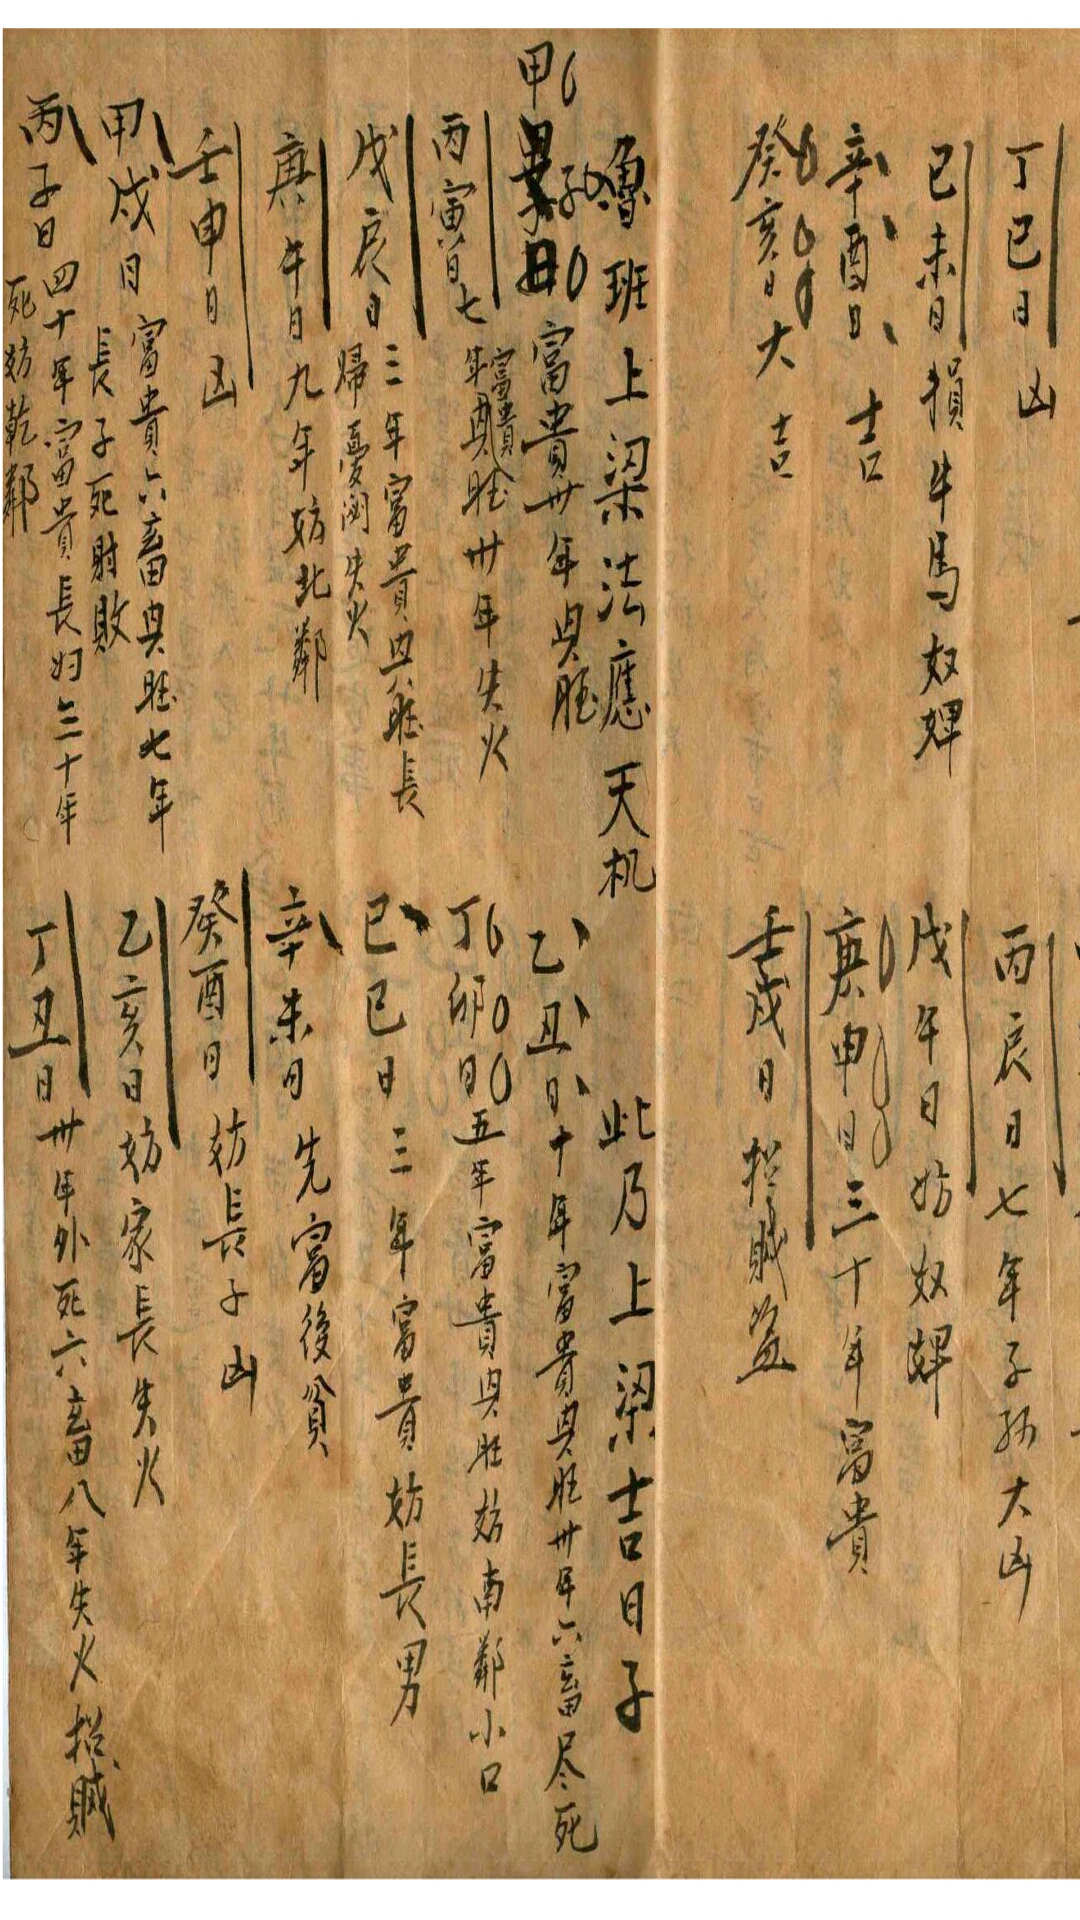 丁巳日 凶
丙辰日七年子孫大凶
己未日損牛馬奴婢
戊午日妨奴婢
辛酉日 吉
庚申日三十年富貴
癸亥日大吉
壬戌日招賊盜
魯班上梁法應天机
此乃上梁吉日子
甲子日富貴卅年興旺
乙丑日十年富貴興旺卅年六畜尽死
丙寅日七年富貴興旺卅年失火
丁卯日五年富貴興旺妨南鄰小口
戊辰日三年富貴興旺長
婦憂閑失火
己巳日三年富貴妨長男
庚午日九年妨北鄰
辛未日先富後貧
壬申日凶
癸酉日妨長子凶
甲戌日富貴六畜興旺七年
長子死財敗
乙亥日妨家長失火
丙子日四十年富貴長妇三十年
死妨乾鄰
丁丑日卅年外死六畜八年失火招賊